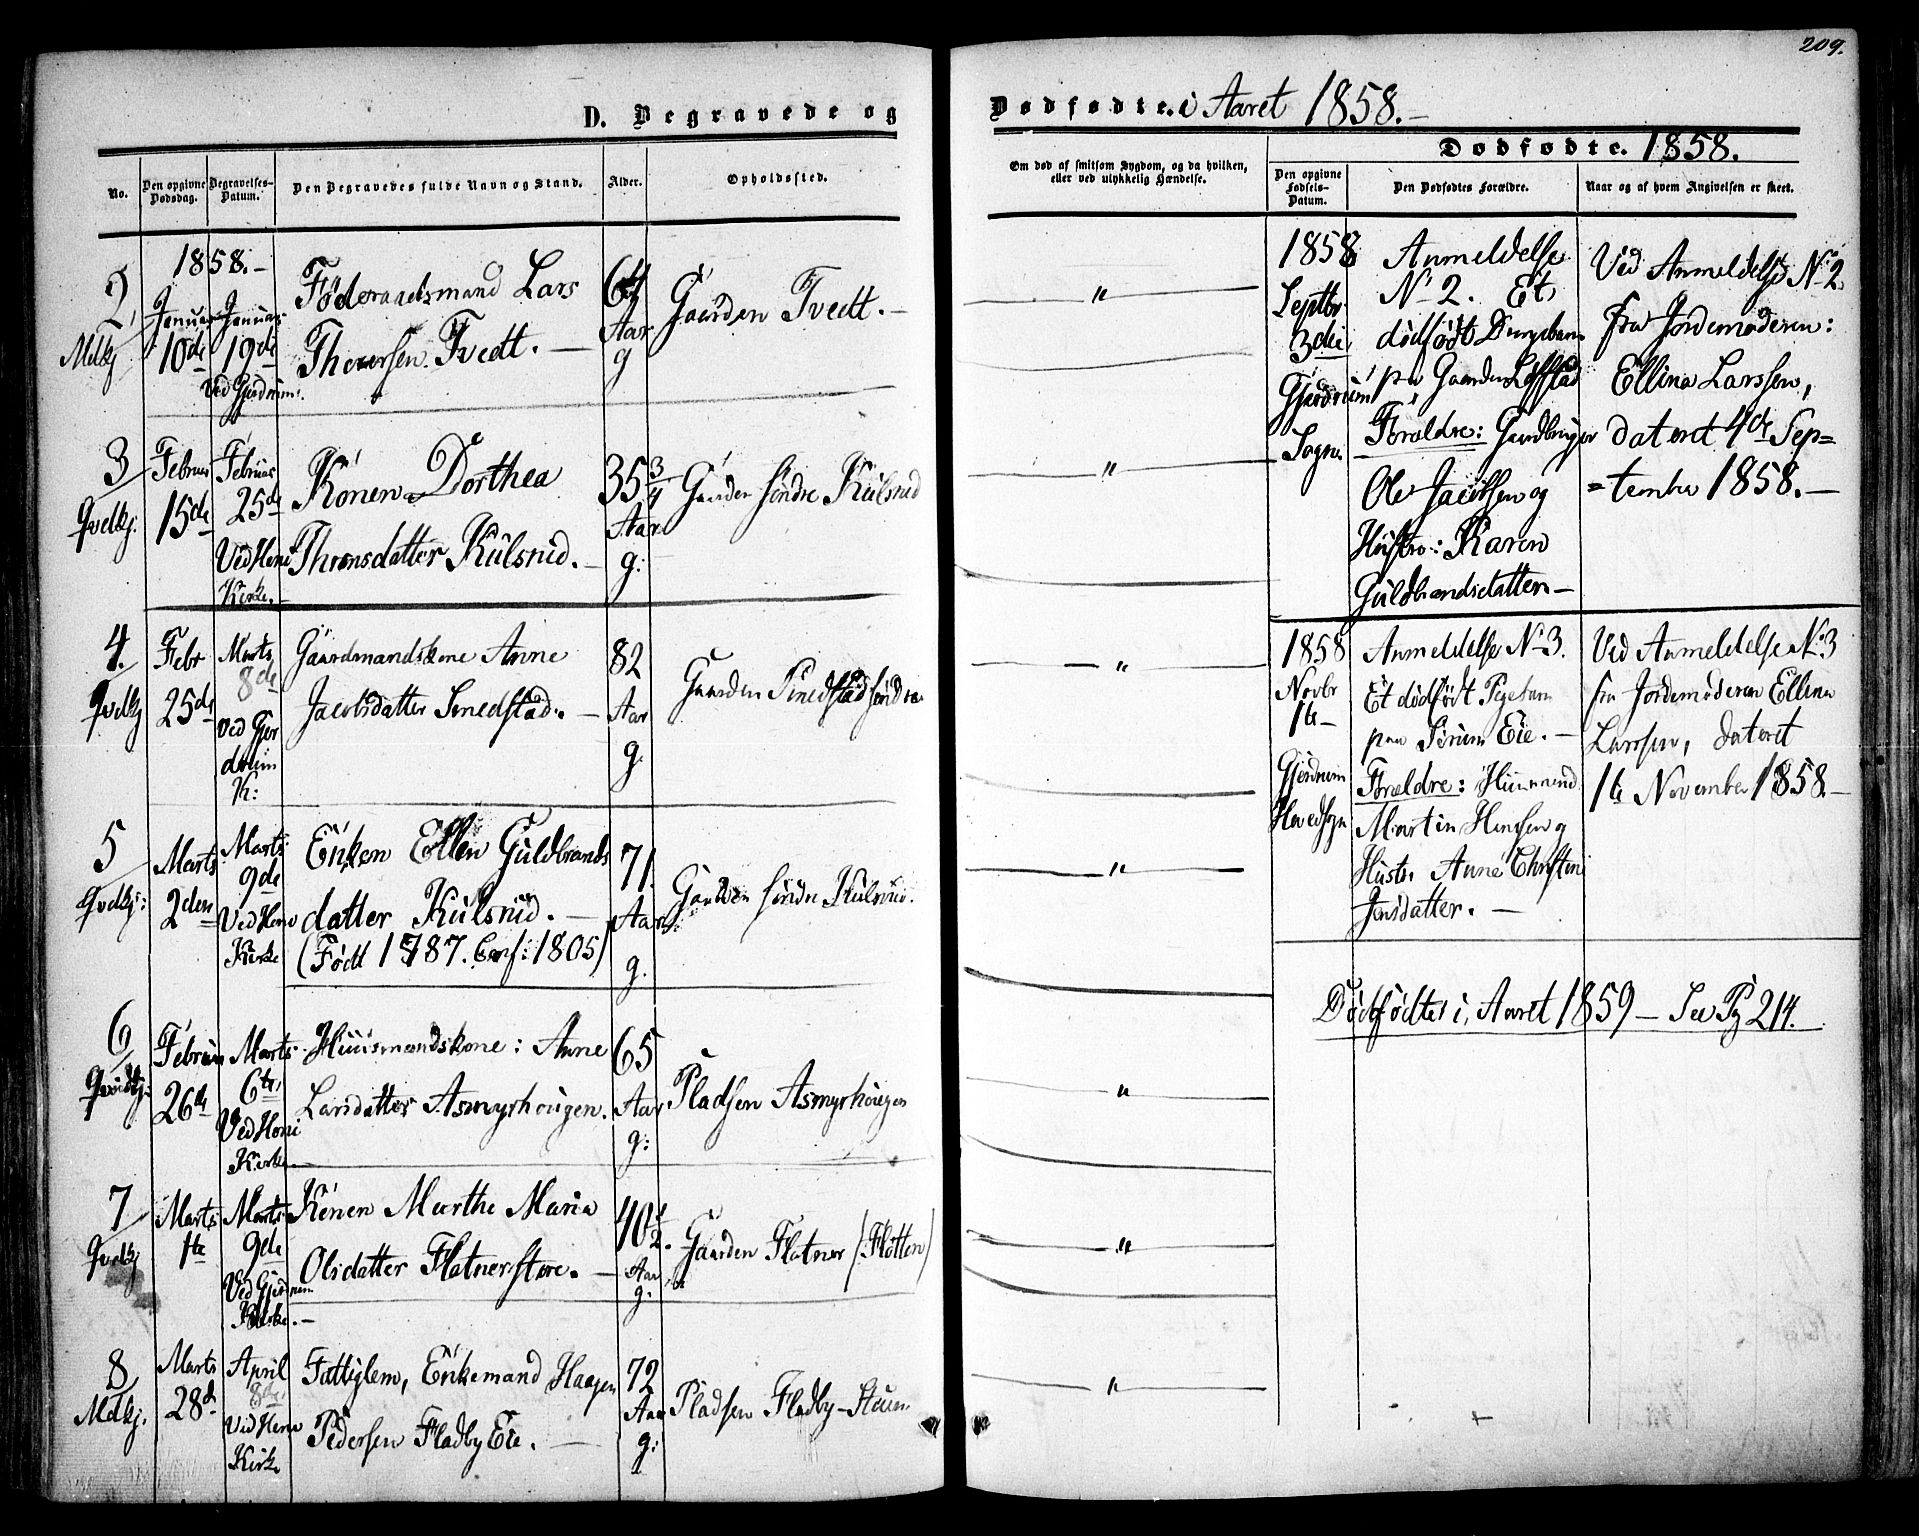 209.
D. Begravede og
Dødfødte. i Aaret 1858.-
No.
Den opgivne Dødsdag.
Begravelses-Datum.
Den Begravedes fulde Navn og Stand.
Alder.
Opholdssted.
Om død af smitsom Sygdom, og da hvilken,
eller ved ulykkelig Hændelse.
Dødfødte. 1858.
Den opgivne Fødsels-Datum.
Den Dødfødtes Forældre.
Naar og af hvem Angivelsen er skeet.
1858.-
2,
Mdkj
Januar
10de
Januar
19de
Ved Gjerdrum
Föderaadsmand Lars
Thorersen Tvedt. -
64
Aar
g
Gaarden Tvedt. -
"
3
Qvdkj.
Februar
15de
Februar
25de
Ved Heni
Kirke. -
Konen Dorthea
Thronsdatter Kulsrud. -
35 3/4
Aar
g:
Gaarden söndre Kulsrud
"
4.
Qvdkj
Febr
25de
Marts
8de
Ved Gjer
drum
K:
Gaardmandskone Anne
Jacobsdatter Smedstad. -
82
Aar
g.
Gaarden Smedstad söndre
"
5
Qvdkj:
Marts
2den
Marts
9de
Ved Heni
Kirke
Enken Ellen Guldbrands
datter Kulsrud. -
(Födt 1787. Conf: 1805)
71.
Aar
g.
Gaarden söndre Kulsrud.
"
6
Qvindkj:
Februar
26de
Marts
6te
Ved Heni
Kirke. -
Huusmandskone: Anne
Larsdatter Asmyrhougen.
65
Aar
g:
Pladsen Asmyrhougen
"
7
Qvdkj
Marts
1te
Marts
9de
Ved Gjerdrum
Kirke. -
Konen Marthe Maria
Olsdatter Flatnerstore. -
40 1/2.
Aar
g.
Gaarden Flatner (Flotten)
"
8
Mdkj.
Marts
28de
April
8de
Ved Heni
Kirke
Fattiglem, Enkemand Haagen
Pedersen Fladby Eie. -
72
Aar
g:
Pladsen Fladby-Houn
"
1858
Septbr
3die
Gjerdrum
Sogn
Anmeldelse
No 2. Et
dödfödt Drengebarn
paa Gaarden Löfstad
Forældre: Gaardbruger
Ole Jacobsen og
Hustro: Karen
Guldbrandsdatter -
Ved Anmeldelse No 2
fra Jordemoderen:
Ellina Larssen,
dateret 4de Sep=
=tember 1858. -
1858
Novbr
16-
Gjerdrum
Hovedsogn
Anmeldelse No 3.
Et dödfödt Pigebarn
paa Sörum Eie. -
Forældre: Huusmand
Martin Hansen og
Hustro Anne Christine
Jensdatter. -
Ved Anmeldelse No 3
fra Jordemoderen Ellina
Larssen, dateret
16 November 1858. -
Dödfödte i Aaret 1859 - See Pg 214.